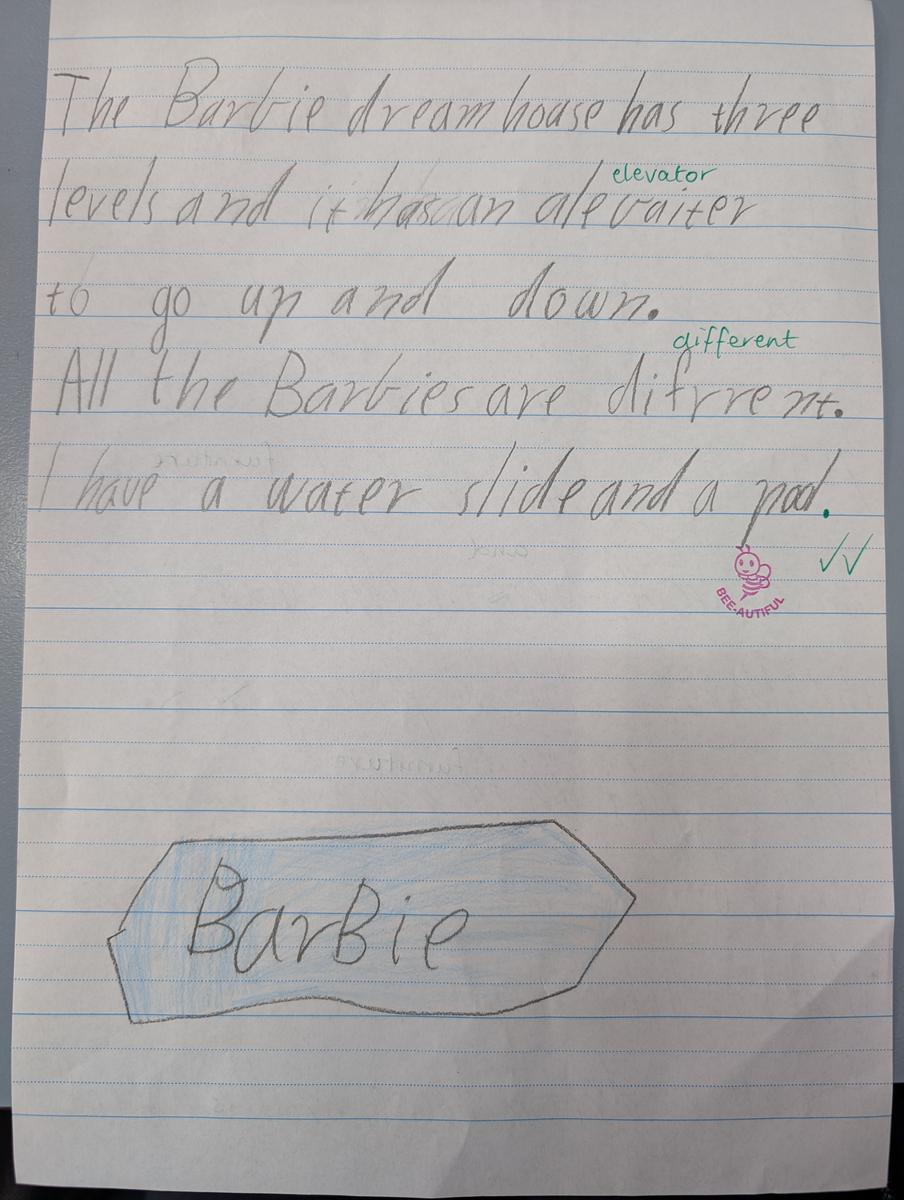 The Barbie dreamhouse has three
elevator
levels and it has an alevaiter
to go up and down.
different
All the Barbies are difrrent.
I have a water slide and a pool.
BEE-AUTIFUL
BarBie